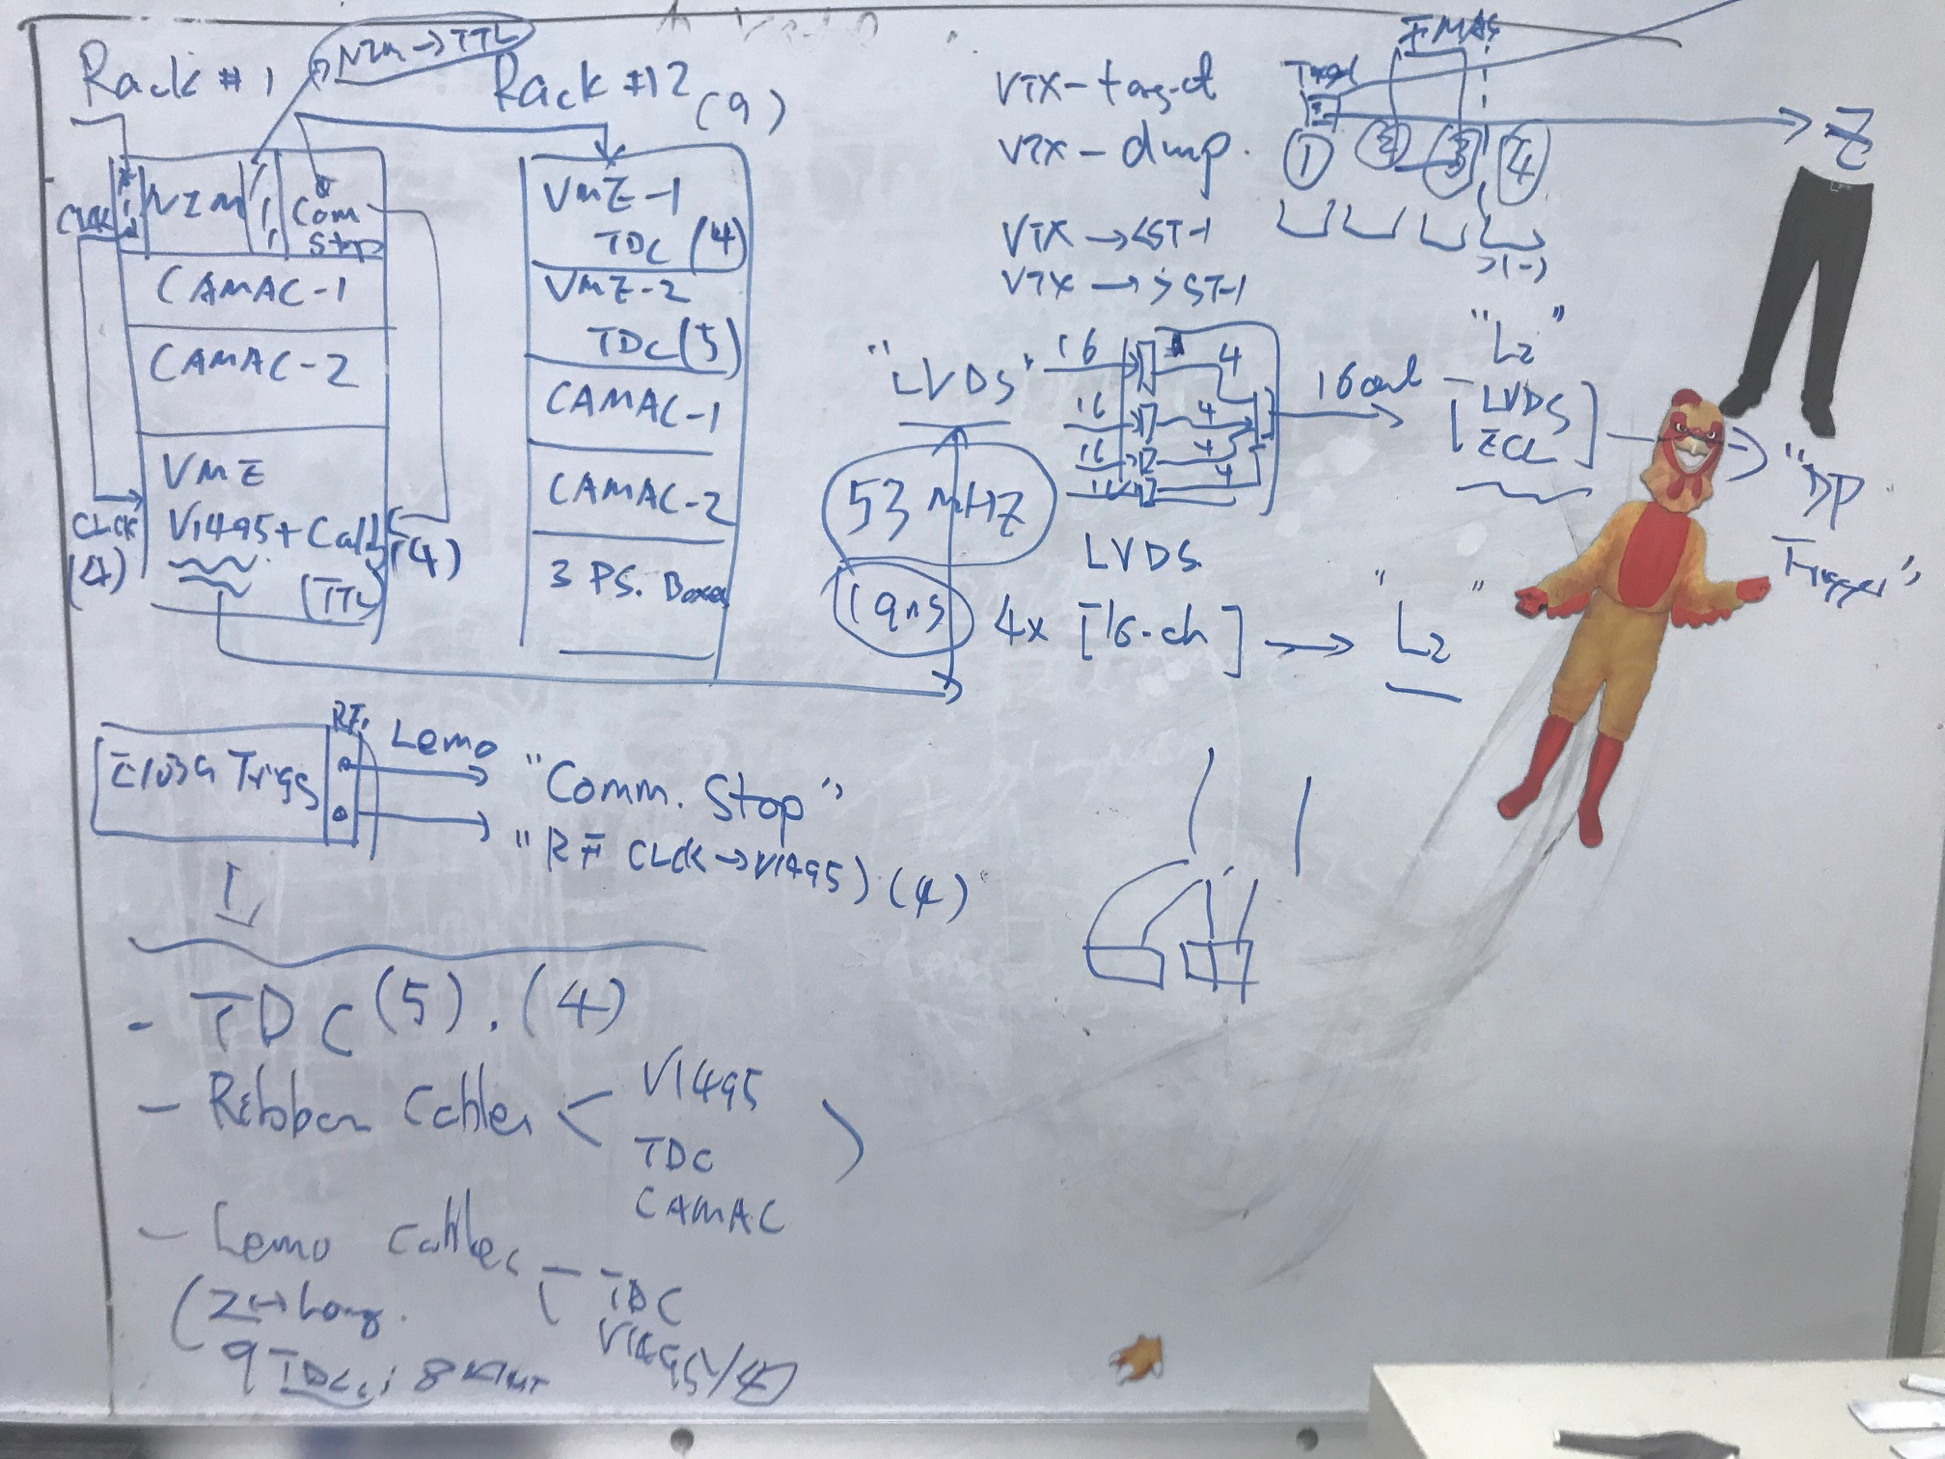 NIM → TTL
Rack #1
Rack #12
(9)
CLK
NIM
Com
Stop
CAMAC-1
CAMAC-2
VME
V1495+
(TTL)
CLCK
(4)
(4)
VME-1
TDC (4)
VME-2
TDC (5)
CAMAC-1
CAMAC-2
3 PS. Boxes
VTX-target
VTX-dump.
VTX → <ST-1
VTX → >ST-1
Target
FMAG
Z
1
2
3
4
"LVDS"
16
4
16
4
16
4
16
4
16 out
"L2"
LVDS
ECL
"DP
Trigger"
53 MHZ
19ns
LVDS
4x [16-ch] → "L2"
E1039 Trigs
RF
Lemo
"Comm. Stop"
"RF CLCK → V1495) (4)
- TDC (5). (4)
- Ribbon Cables < V1495
TDC
CAMAC
- Lemo Cables
TDC
V1495
(2 → Long.
9 TDCs; 8